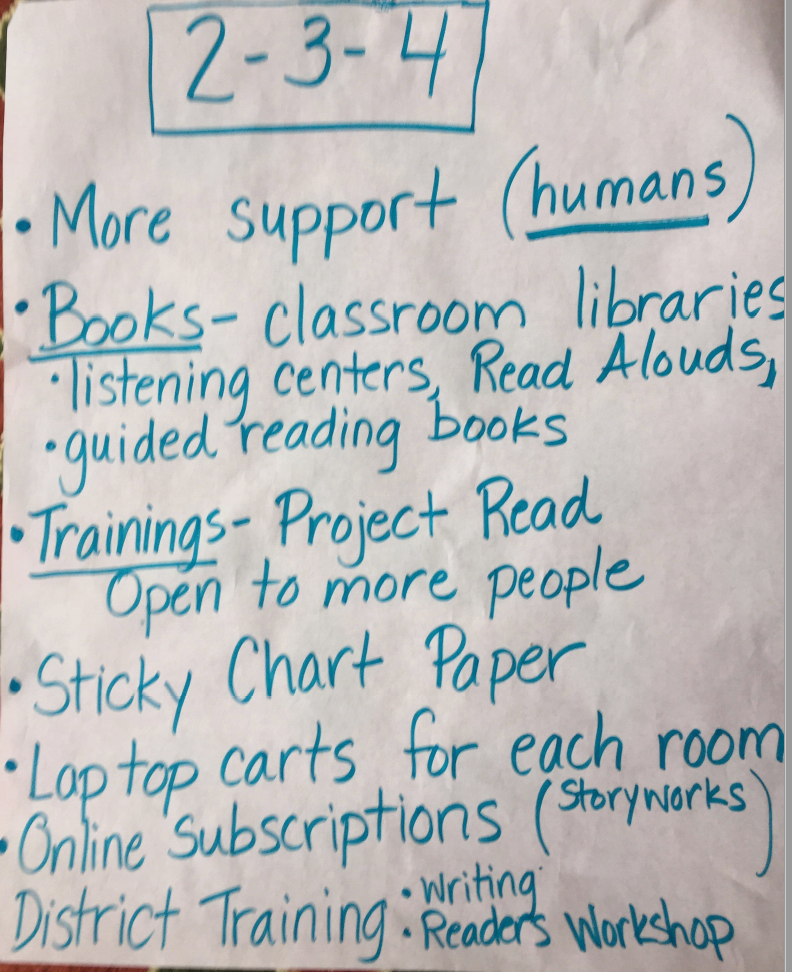 2-3-4
• More support (humans)
• Books- classroom libraries
• listening centers, Read Alouds,
• guided reading books
• Trainings- Project Read
Open to more people
• Sticky Chart Paper
• Laptop carts for each room
• Online Subscriptions (Storyworks)
District Training • Writing
• Readers Workshop